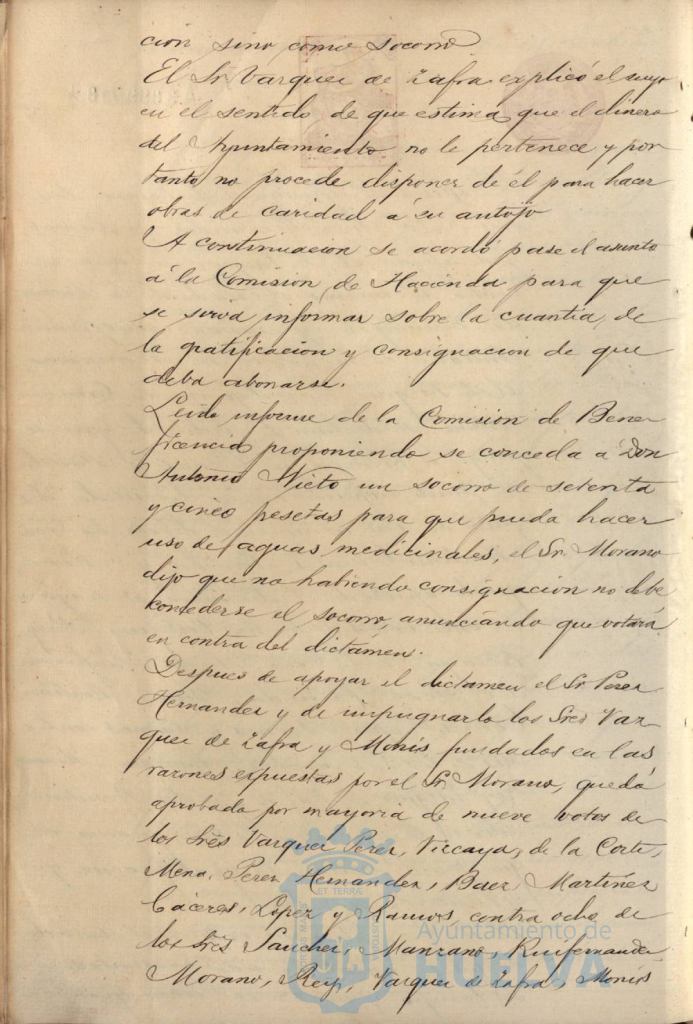 cion sino como socorro.
El Sr. Vazquez de Zafra explicó el suyo
en el sentido de que estima que el dinero
del Ayuntamiento no le pertenece y por
tanto no procede disponer de él para hacer
obras de caridad á su antojo
A continuacion se acordó pase el asunto
á la Comision de Hacienda para que
se sirva informar sobre la cuantía de
la gratificacion y consignacion de que
deba abonarse.
Leido informe de la Comision de Bene
ficencia proponiendo se conceda a Don
Antonio Nieto un socorro de setenta
y cinco pesetas para que pueda hacer
uso de aguas medicinales, el Sr. Morano
dijo que no habiendo consignacion no debe
concederse el socorro, anunciando que votará
en contra del dictámen.
Despues de apoyar el dictamen el Sr. Perez
Hernandez y de impugnarlo los Sres Vaz
quez de Zafra y Monís fundados en las
razones expuestas por el Sr. Morano, quedó
aprobado por mayoria de nueve votos de
los Sres Vazquez Perez, Vizcaya, de la Corte,
Mena, Perez Hernandez, Baez, Martinez
Cáceres, Lopez y Ramos, contra ocho de
los Sres Sanchez, Manzano, Ruifernandez,
Morano, Rey, Vazquez de Zafra, Monís
Ayuntamiento de
HUELVA